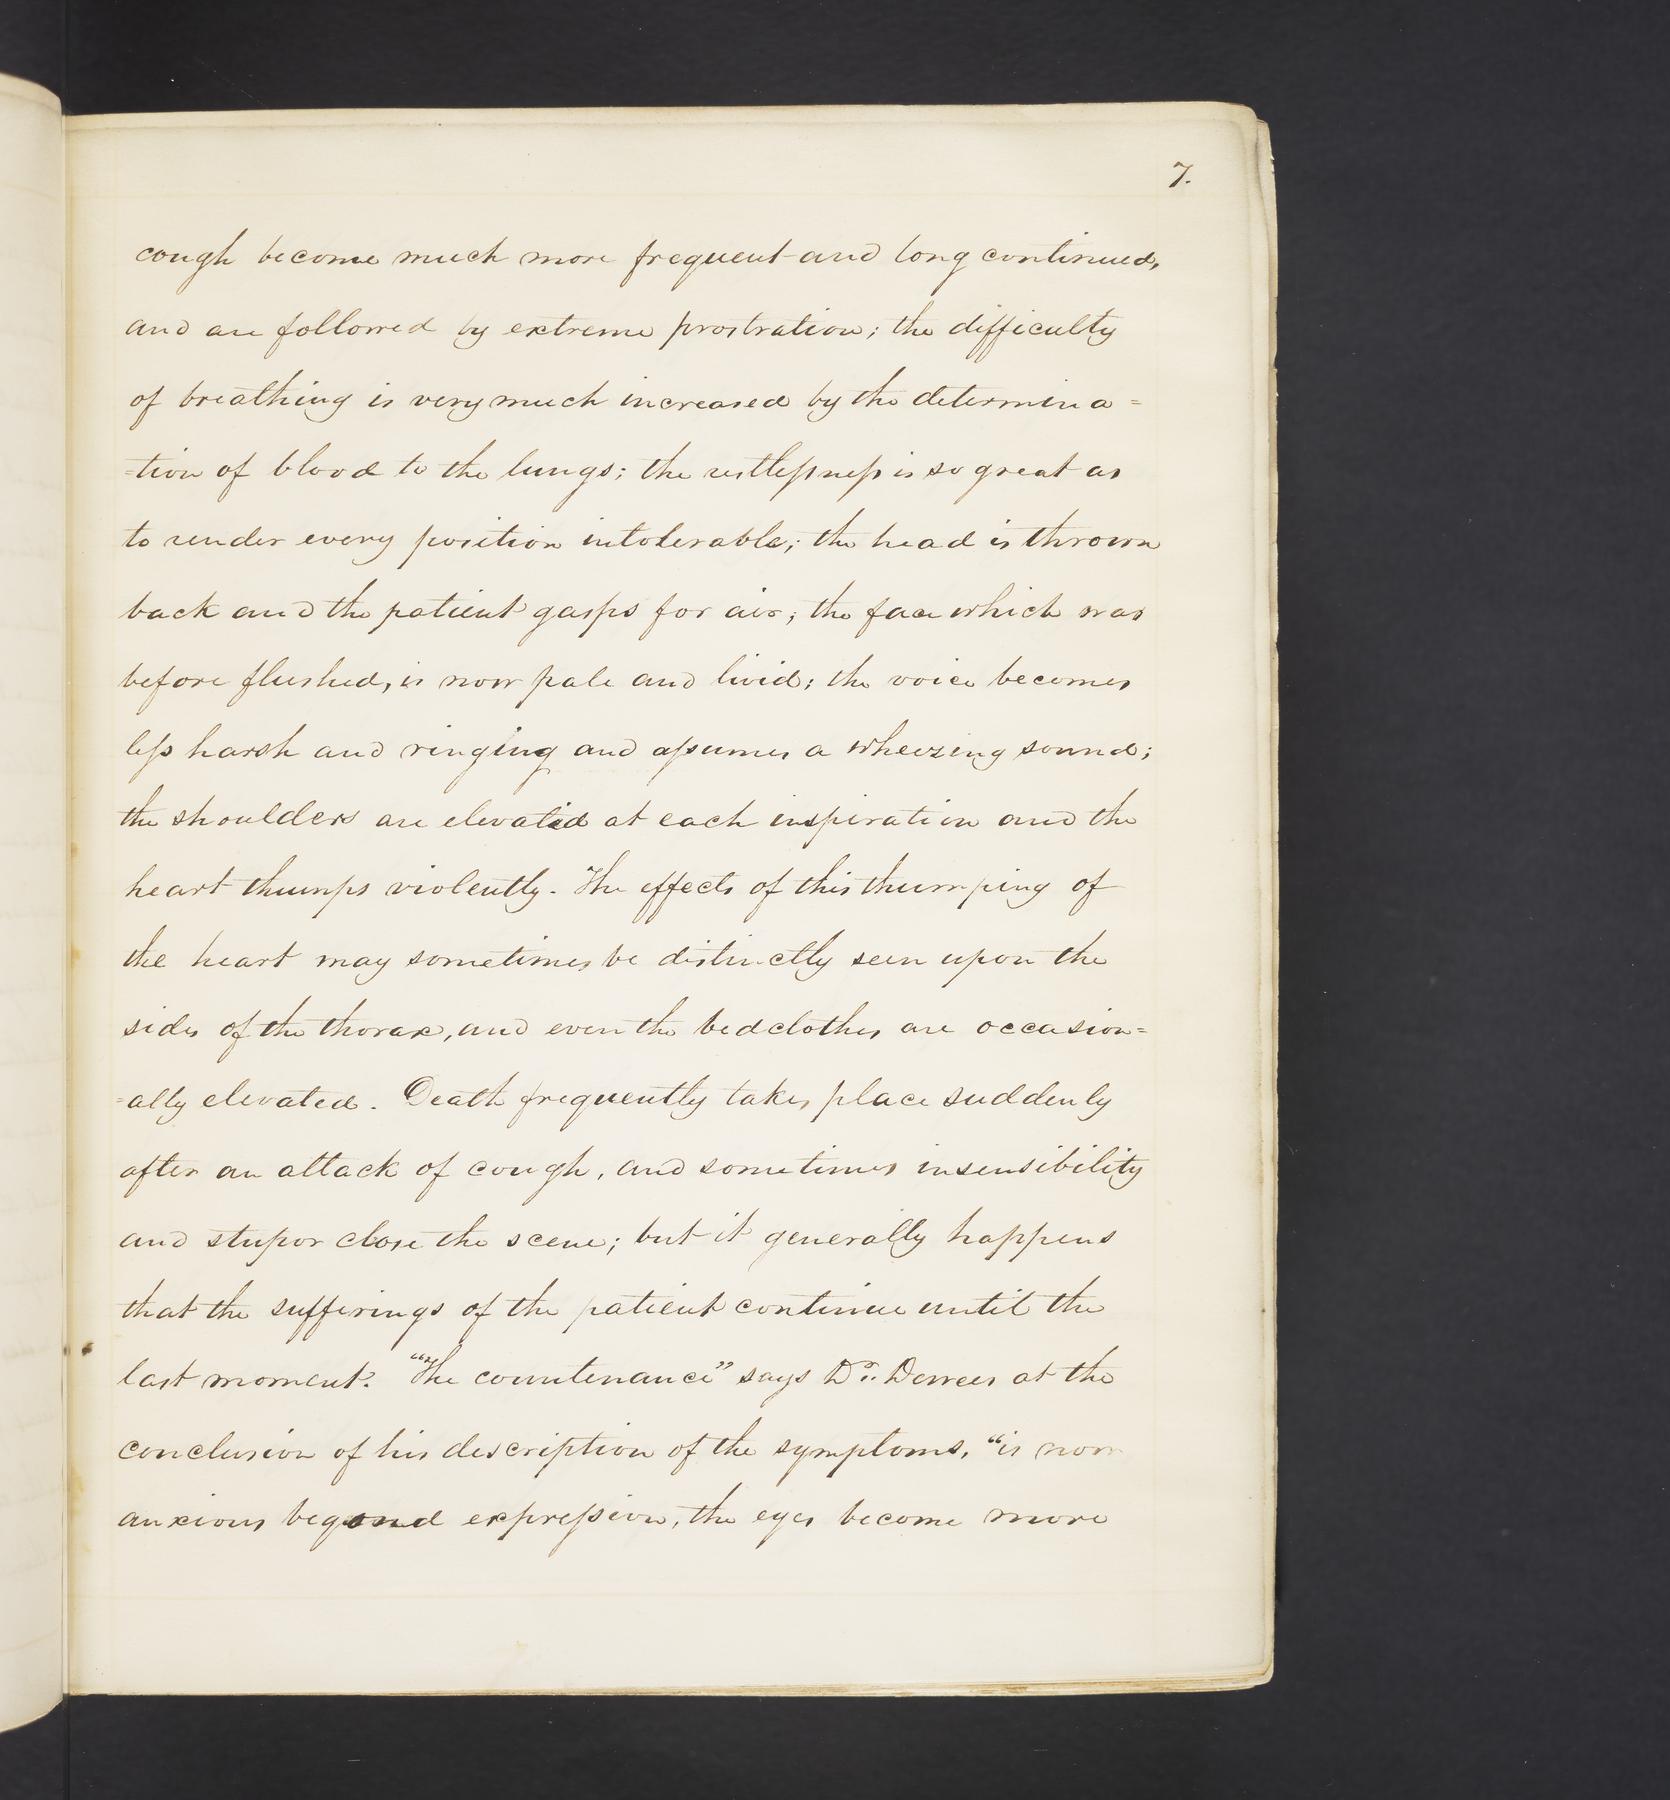 7.
cough become much more frequent and long continued,
and are followed by extreme prostration; the difficulty
of breathing is very much increased by the determina=
=tion of blood to the lungs; the restleſsneſs is so great as
to render every position intolerable; the head is thrown
back and the patient gasps for air; the face which was
before flushed, is now pale and livid; the voice becomes
leſs harsh and ringing and aſsumes a wheezing sound;
the shoulders are elevated at each inspiration and the
heart thumps violently. The effects of this thumping of
the heart may sometimes be distinctly seen upon the
sides of the thorax, and even the bedclothes are occasion=
=ally elevated. Death frequently takes place suddenly
after an attack of cough, and sometimes insensibility
and stupor close the scene; but it generally happens
that the sufferings of the patient continue until the
last moment. "The countenance" says Dr. Dewees at the
conclusion of his description of the symptoms, "is now
anxious beyond expreſsion, the eyes become more